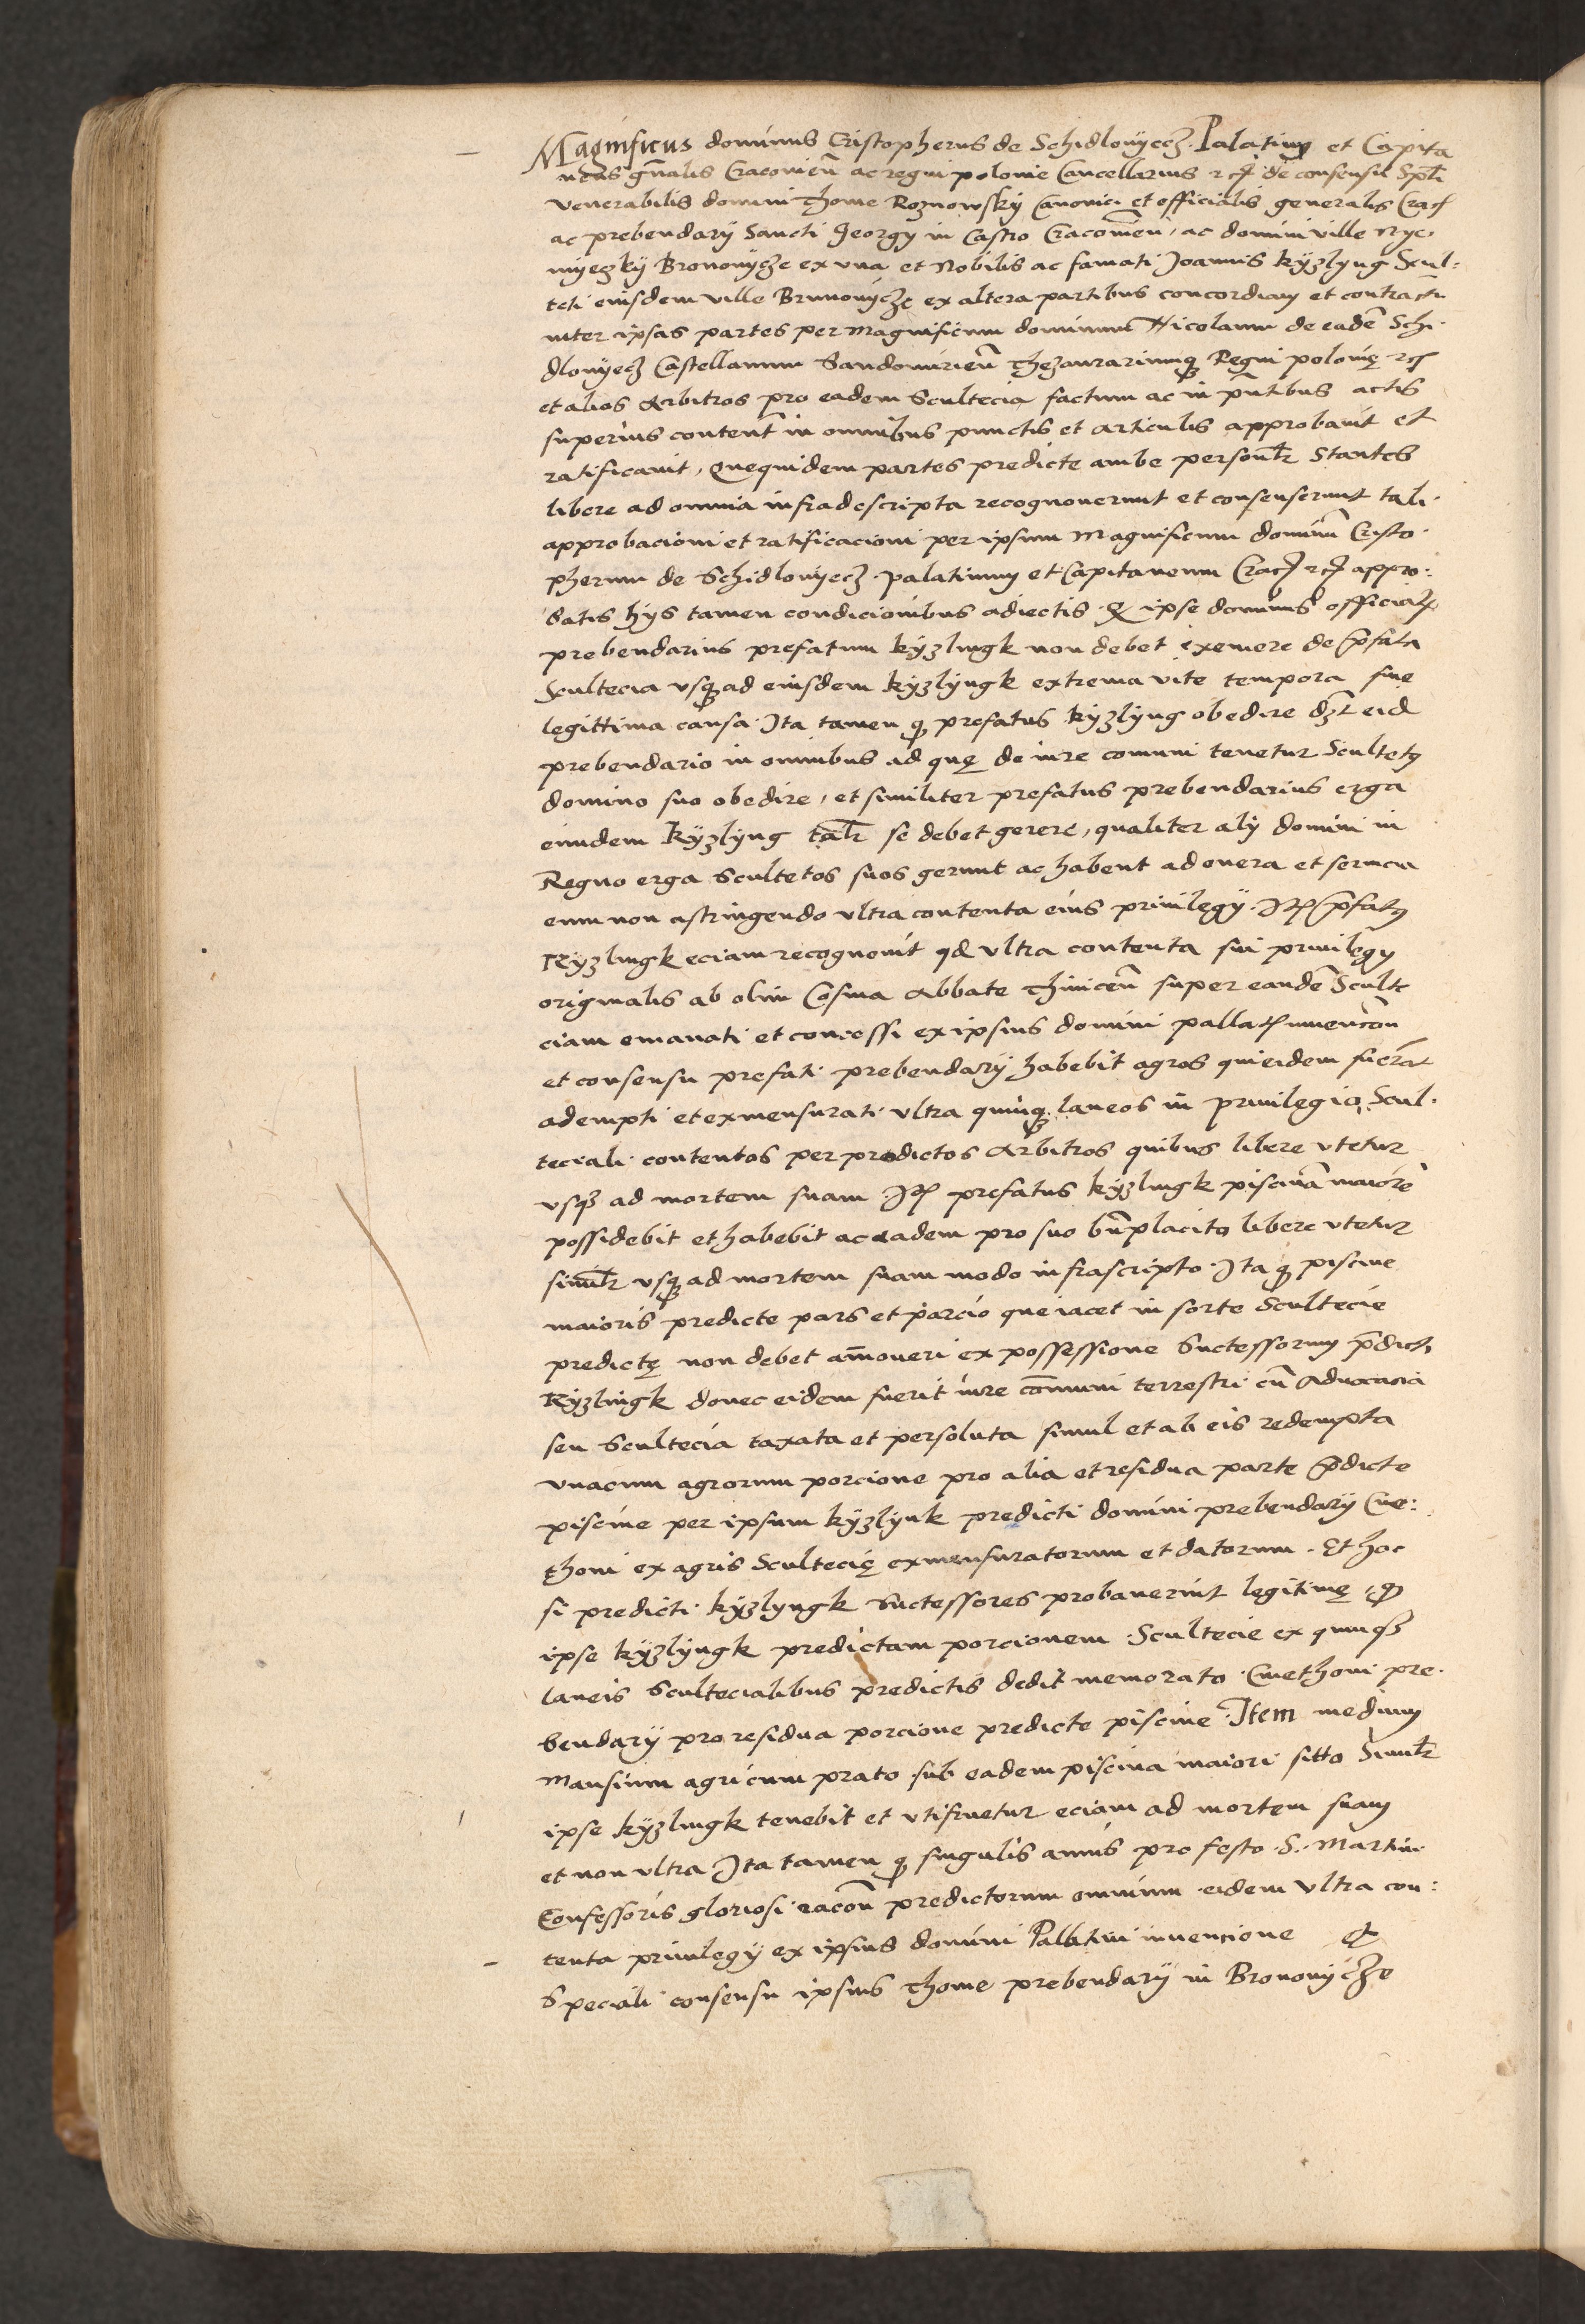 Magnificus dominus Cristopherus de Schidlovyecz Palatinus et Capita
neus gn̄alis Cracovien̄ ac regni polonie Cancellarius rc̄ de consensu Spāli
venerabilis domini Thome Roznowsky Canonici et officialis generalis Crac̄
ac prebendary Sancti Georgy in Castro Cracovien̄, ac domini ville Nye
myeczky Bronovycze ex una et Nobilis ac famati Joannis kyzlyng Scul:
teti eiusdem ville Brunovycze ex altera partibus concordiam et contractū
inter ipsas partes per Magnificum dominum Nicolaum de eadē Schi
dlovyecz Castellanum Sandomirien̄ Thezaurariumq̃ Regni polonię rc̄
et alios Arbitros pro eadem Scultecia factum ac in pn̄tibus actis
superius content̄ in omnibus punctis et articulis approbavit et
ratificavit, Quequidem partes predicte ambe personalr̄ Stantes
libere ad omnia infradescripta recognoverunt et consenserunt tali
approbacioni et ratificacioni per ipsum Magnificum dominū Cristo
pherum de Schidlovyecz palatinum et Capitaneum Crac̄ rc̄ appro:
batis hys tamen condicionibus adiectis q̃ ipse dominus official̄
prebendarius prefatum kyzlingk non debet exemere de p̄fata
Scultecia vsq̃ ad eiusdem kyzlyngk extrema vite tempora sine
legittima causa Ita tamen q̃ prefatus kyzlyng obedire dz̄t eid̄
prebendario in omnibus ad quę de iure comuni tenetur Scultetus
domino suo obedire, et similiter prefatus prebendarius erga
eundem kyzlyng talr̄ se debet gerere, qualiter aly domini in
Regno erga Scultetos suos gerunt ac habent ad onera et servicia
eum non astringendo vltra contenta eius privilegy. It̄ p̄fatus
Kyzlingk eciam recognovit qd̄ vltra contenta sui privilegy
originalis ab olim Cosma Abbate Thinicen̄ super eandē Sculte
ciam emanati et concessi ex ipsius domini pallat̄ invencōn
et consensu prefati prebendary habebit agros qui eidem fuerāt
adempti et exmensurati vltra quinq̃ laneos in privilegio Scul
teciali contentos per predictos Arbitros quibus libere vtetur
vsq̃ ad mortem suam. It̄ prefatus kyzlingk piscinā maiorē
possidebit et habebit ac eadem pro suo bn̄placito libere vtetur
similr̄ vsq̃ ad mortem suam modo infrascripto. Ita q̃ piscine
maioris predicte pars et porcio que iacet in sorte Scultecie
predictę non debet am̄overi ex possessione Successorum p̄dicti
Kyzlingk donec eidem fuerit iure com̄uni terrestri cū Advocacia
seu Scultecia taxata et persoluta simul et ab eis redempta
vnacum agrorum porcione pro alia et residua parte p̄dicte
piscine per ipsum kyzlynk predicti domini prebendary Cme:
thoni ex agris Scultecię exmensuratorum et datorum. Et hoc
si predicti kyzlyngk Successores probaverint legitimę, q̃
ipse kyzlyngk predictam porcionem Scultecie ex quinq̃
laneis Scultecialibus predictis dedit memorato Cmethoni pre
bendary pro residua porcione predicte piscine. Item medium
Mansium agri cum prato sub eadem piscina maiori sitto Similr̄
ipse kyzlingk tenebit et vtifruetur eciam ad mortem suam
et non vltra Ita tamen q̃ singulis annis pro festo S. Martini
Confessoris gloriosi racōn predictorum omnium eidem vltra con:
tenta privilegy ex ipsius domini Pallatini invencione et
Speciali consensu ipsius Thome prebendary in Bronovycze